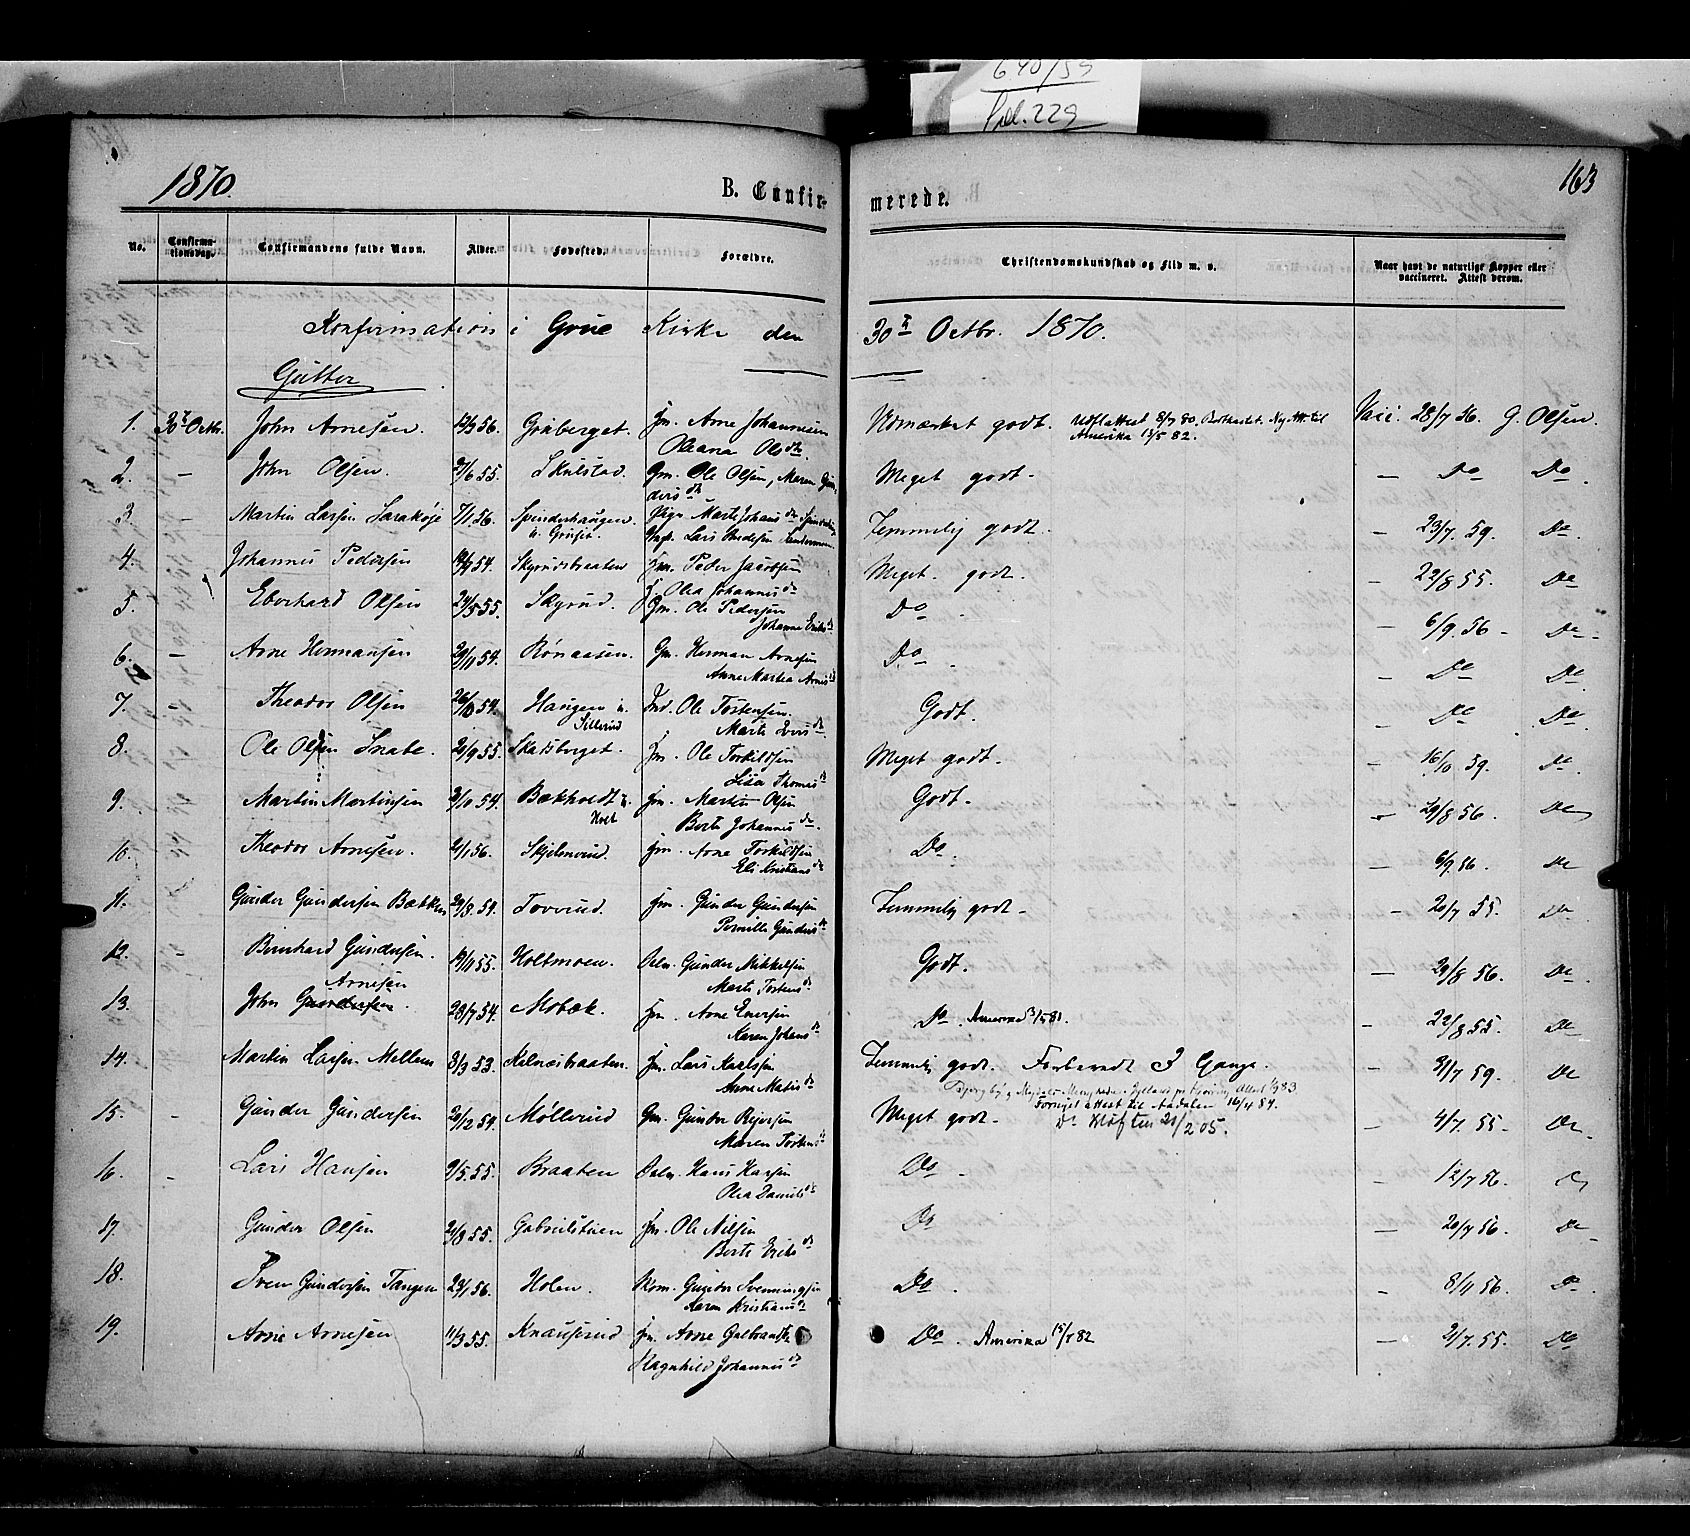 640/59
Hal. 229
1870.
B. Confir-
merede.
163
No.
Confirma-
tionsdag.
Confirmandens fulde Navn.
Alder.
Fødested.
Forældre.
Christendomskundskab og Flid m. v.
Naar havt de naturlige Kopper eller
vaccineret. Attest derom.
Konfirmation i Grue Kirke den 30te Octbr. 1870.
Gutter
1. 30te Octbr. John Arnesen. 12/3 56. Grüberget. Gm. Arne Johannesen
Oleana Olsdtr. Udmærket godt. Amerika 13/5 82. Vacc. 28/7 56. G. Olsen.
2. — John Olsen. 27/6 55. Skulstad. Gm. Ole Olsen, Maren Gun-
dersdr Meget godt. — Do Do
3. — Martin Larsen 7/1 56. Spinderhaugen. Pige Marte Johansdr
Lars Temmelig godt. — 23/7 59. Do
4. Johannes Pedersen 54. Skyrudsbraaten Gm. Peder Jacobsen
Olea Johannesdr Meget godt. — 22/8 55. Do
5. — Eberhard Olsen 24/5 55. Skyrud. Gm. Ole Pedersen
Johanne Eriksdr Do — 6/9 56 Do
6. — Arne Hermansen 29/11 54. Rønaasen. Gm. Herman Arnesen
Anne Martea Arnesdr Do — Do Do
7. — Theodor Olsen 26/10 54. Haugen u.
Sillerud Ind. Ole Tostensen.
Marte Iversdr Godt. — Do Do
8. Ole Olsen Snabe. 29/9 55. Skasberget. Gm. Ole Torkildsen
Lisa Thomasdr Meget godt. — 16/10 59. Do
9. Martin Martinsen 3/10 54. Bækholdt u.
Holt Gm. Martin Olsen
Berte Johannesdr. Godt. 29/8 56. Do
10. Theodor Arnesen. 2/1 56. Skjelverud. Gm. Arne Torkildsen
Eli Kristiansdr Do. — 6/9 56. Do
11. Gunder Gundersen Bækken 29/8 54. Toverud. Gm. Gunder Gundersen
Pernille Gundersdr Temmelig godt — 20/7 55. Do
12. Bernhard Gundersen. 19/11 55. Holtmoen. Gunder Mikkelsen
Marte Tostensdr Godt. — 29/8 56. Do
Arnesen
13. John Gundersen. 28/7 54. Mobæk. Gm. Arne Enersen
Karen Johansdr Do. Amerika 3/5 81. — 22/8 55. Do
14. Martin Larsen Mellem 3/3 53. Kilnæsbraaten. Gm. Lars Karlsen
Anne Matisdr Temmelig godt. Forberedt 3 Gange. — 31/7 59. Do
15. — Gunder Gundersen 29/12 54. Møllerud Gm. Gunder Reiersen
Maren Tostensdr Meget godt. Fornyet attest til Aadalen 16/4 84.
Do Kløften 21/2 05. — 4/7 55. Do
16. — Lars Hansen 9/5 55. Braaten Hans Larsen
Olea Danielsdr Do — 12/7 56. Do
17. Gunder Olsen 21/8 55. Gabrielstuen Gm. Ole Nilsen
Berte Eriksdr Do — 20/7 56 Do
18. Sven Gundersen Tangen 23/1 56. Holen. Gunder Svenningsen
Karen Kristiansdr Do — 8/11 56. Do
19. Arne Arnesen 11/3 55. Knauserud Gm. Arne Gulbrands
Ragnhild Johannesdr Do. Amerika 15/5 82 — 21/7 55. Do